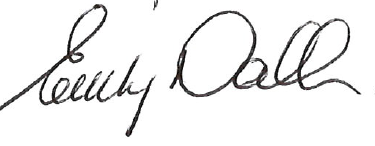 Emily Dalh